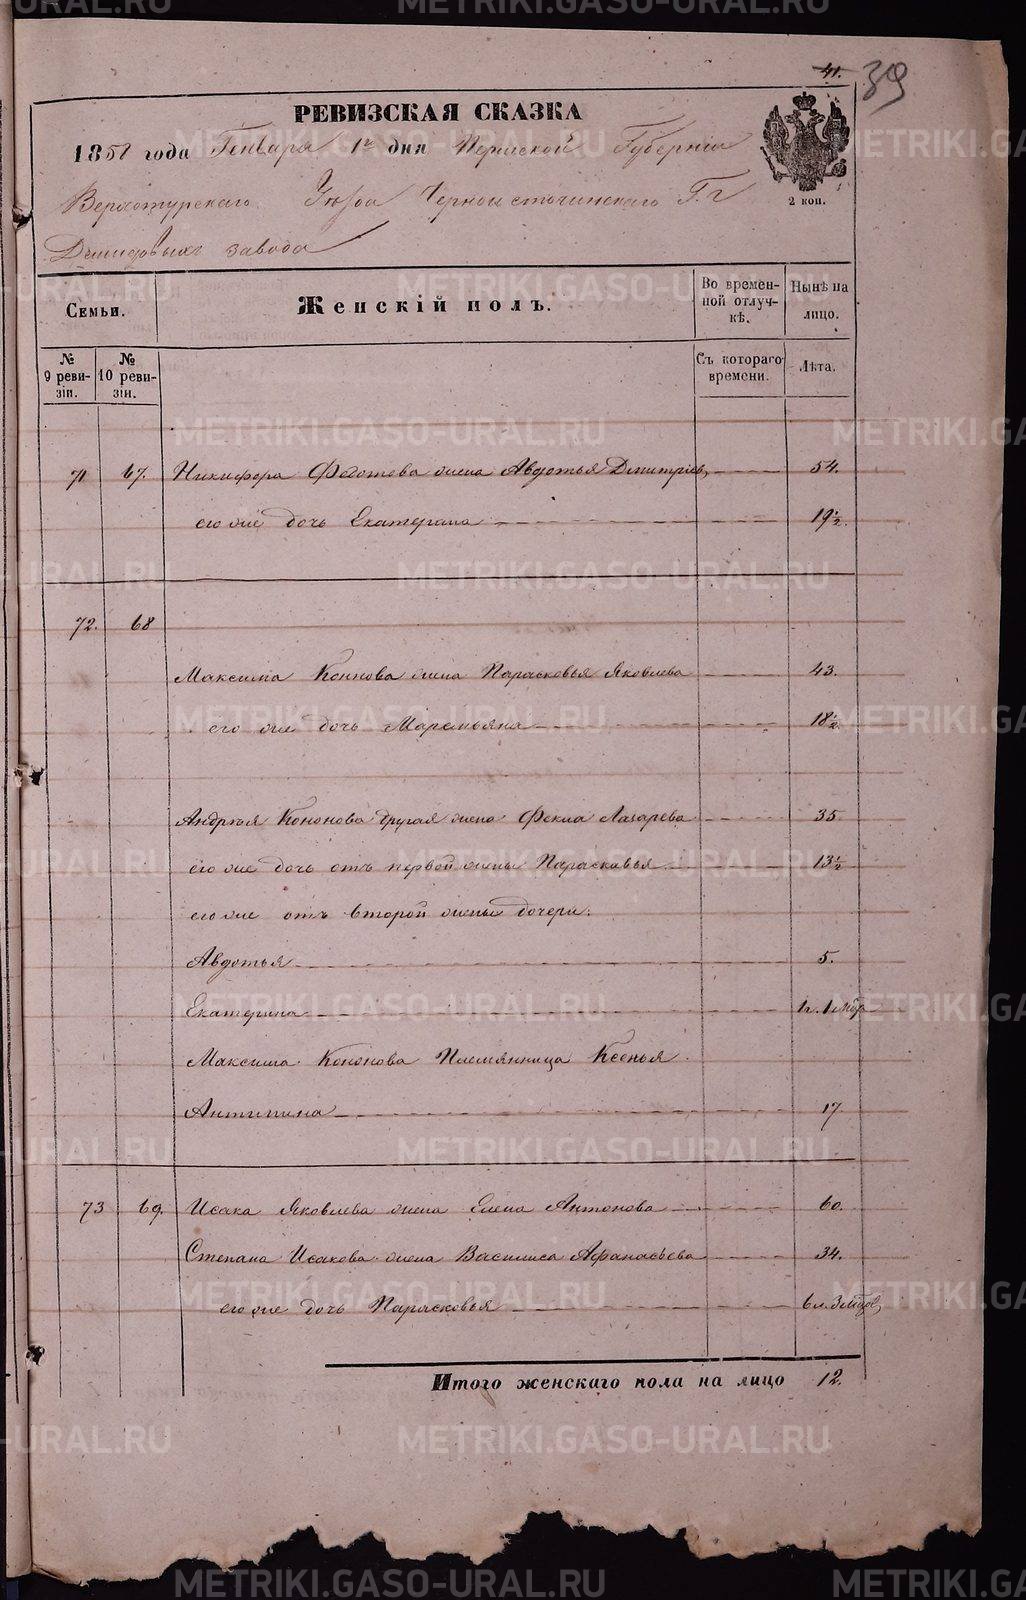 41. 39
РЕВИЗСКАЯ СКАЗКА
1858 года Генваря 1го дня Пермской Губернии
2 коп.
Верхотурскаго Уезда Черноисточинскаго Г.г
Демидовыхъ завода
Семьи.
Женскій полъ.
Во времен-
ной отлуч-
кѣ.
Нынѣ на
лицо.
№
9 реви-
зіи.
№
10 реви-
зіи.
Съ котораго
времени.
Лѣта.
71 67. Никифора Федотова жена Авдотья Дмитріев. 54.
его же дочь Екатерина 19½.
72. 68
Максима Коннова жена Парасковья Яковлева 43.
его же дочь Маремьяна 18½.
Андрея Кононова другая жена Фекла Лазарева 35.
его же дочь отъ первой жены Параскавья 13½
его же отъ второй жены дочери:
Авдотья 5.
Екатерина 1г. 1 мѣр
Максима Кононова Племянница Ксенья
Антипина 17.
73 69. Исака Яковлева жена Елена Антонова 60.
Степана Исакова жена Василиса Афанасьева 34.
его же дочь Парасковья 6л. 3 мѣс.
Итого женскаго пола на лицо 12.
METRIKI.GASO-URAL.RU